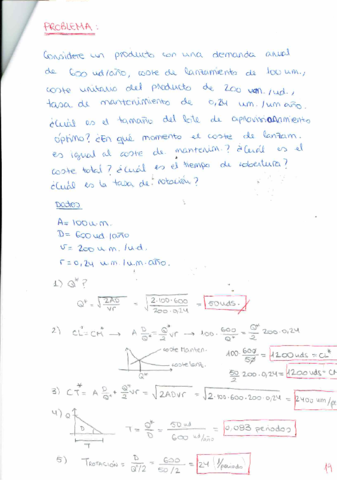 PROBLEMA:
Considere un producto con una demanda anual
de 600 ud/año, coste de lanzamiento de 100 um.,
coste unitario del producto de 200 um./ud.,
tasa de mantenimiento de 0,24 um./um año.
¿Cuál es el tamaño del lote de aprovisionamiento
óptimo? ¿En qué momento el coste de lanzam.
es igual al coste de mantenim.? ¿Cuál es el
coste total? ¿Cuál es el tiempo de cobertura?
¿Cuál es la tasa de rotación?
Datos
A = 100 u.m.
D = 600 ud/año
v = 200 u.m./ud.
r = 0,24 u.m./um.año.
1) Q*?
Q* = √(2AD/vr) = √(2·100·600/200·0,24) = 50 uds.
2) CL* = CM* → A D/Q* = Q*/2 vr → 100· 600/Q* = Q*/2 200·0,24
coste Manten.
coste lanz.
Q*
100· 600/50 = 1200 uds = CL*
50/2 200·0,24 = 1200 uds = CM
3) CT* = A D/Q* + Q*/2 vr = √2ADvr = √2·100·600·200·0,24 =
4) Q
D
T
T = Q*/D = 50 u/600 = 0,083 periodos
5) TROTACIÓN = D/Q*/2 = 600/50/2 = 24